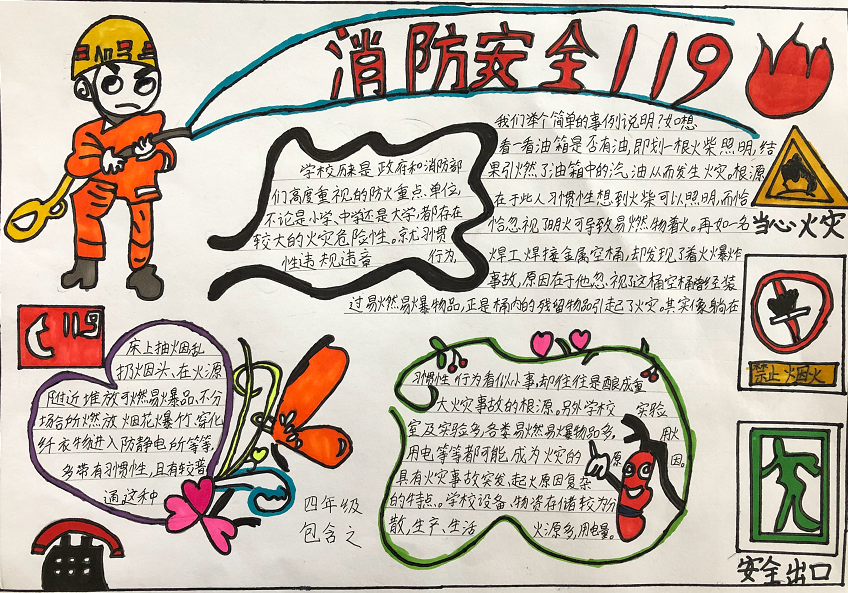 消防安全119
学校历来是政府和消防部
们高度重视的防火重点、单位,
不论是小学、中学还是大学,都存在
较大的火灾危险性。就习惯
性违规违章 行为,
我们举个简单的事例说明?如想
看一看油箱是否有油,即划一根火柴照明,结
果引燃了油箱中的汽油从而发生火灾。根源
在于此人习惯性想到火柴可以照明,而恰
恰忽视了明火可导致易燃物着火。再如一名
焊工焊接金属空桶,却发现了着火爆炸
事故,原因在于他忽视了这桶空桶曾经装
过易燃易爆物品,正是桶内的残留物品引起了火灾。其实像躺在
当心火灾
禁止烟火
119
床上抽烟乱
扔烟头、在火源
附近堆放可燃易爆品、不分
场合所燃放烟花爆竹、穿化
纤衣物进入防静电所等等,
多带有习惯性,且有较普
遍这种
习惯性行为看似小事,却往往是酿成重
大火灾事故的根源。另外学校 实验
室及实验多,各类易燃易爆物品多,
用火
用电等等都可能成为火灾的 原因。
具有火灾事故突发、起火原因复杂
的特点。学校设备、物资存储较为分
散,生产、生活 火源多,用电量。
四年级
包含之
安全出口